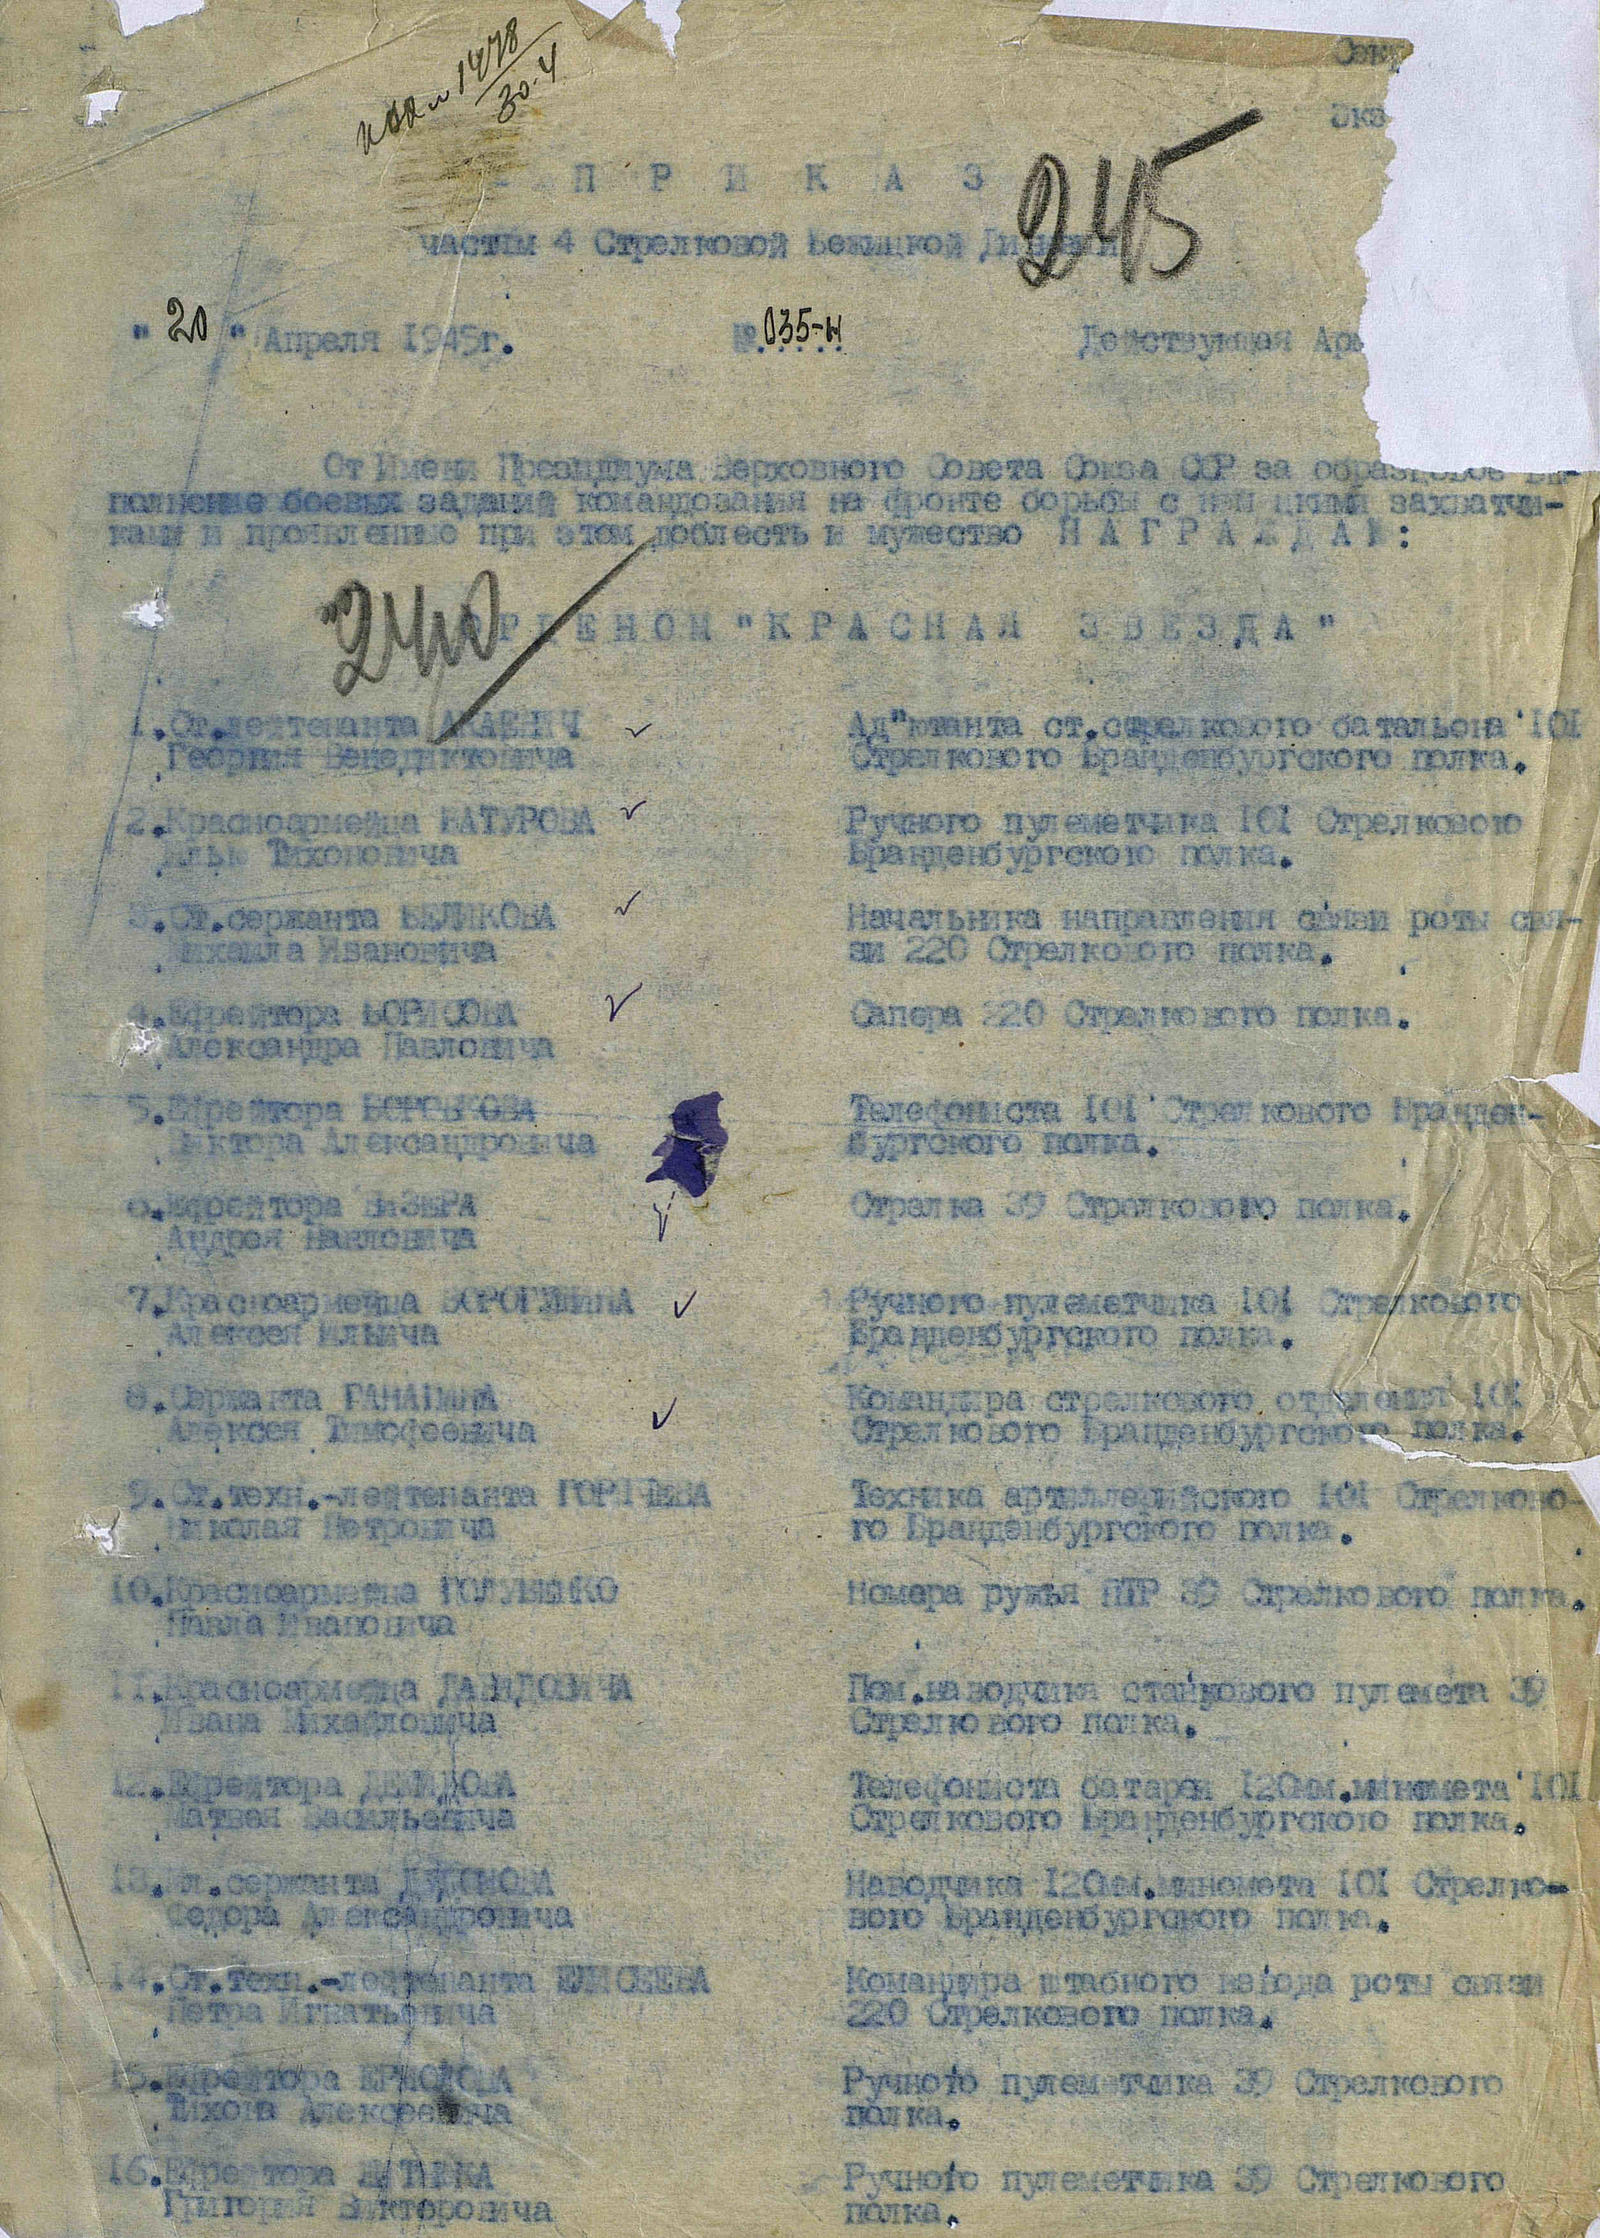 1478
30-4
Сек
Экз
245
П Р И К А З
частям 4 Стрелковой Бежицкой Дивизии
"20" Апреля 1945г. №.035-н Действующая Арм
От Имени Президиума Верховного Совета Союза ССР за образцовое вы-
полнение боевых заданий командования на фронте борьбы с немецкими захватчи-
ками и проявленные при этом доблесть и мужество Н А Г Р А Ж Д А Ю :
240
ОРДЕНОМ "КРАСНАЯ ЗВЕЗДА"
1.Ст.лейтенанта Ад"ютанта ст.стрелкового батальона 101
Георгия Венедиктовича Стрелкового Бранденбургского полка.
2.Красноармейца БАТУРОВА Ручного пулеметчика 101 Стрелкового
Илью Тихоновича Бранденбургского полка.
3.Ст.сержанта БЕЛИКОВА Начальника направления связи роты свя-
Михаила Ивановича зи 220 Стрелкового полка.
4.Ефрейтора БОРИСОВА Сапера 220 Стрелкового полка.
Александра Павловича
5.Ефрейтора БОРОВКОВА Телефониста 101 Стрелкового Бранден-
Виктора Александровича бургского полка.
6.Ефрейтора Стрелка 39 Стрелкового полка.
Андрея Павловича
7.Красноармейца Ручного пулеметчика 101 Стрелкового
Алексея Ильича Бранденбургского полка.
8.Сержанта Командира стрелкового отделения 101
Алексея Тимофеевича Стрелкового Бранденбургского полка.
9.Ст.техн.-лейтенанта ГОРЯЧЕВА Техника артиллерийского 101 Стрелково-
Николая Петровича го Бранденбургского полка.
10.Красноармейца Номера ружья ПТР 39 Стрелкового полка.
Павла Ивановича
11.Красноармейца ДАВИДОВИЧА Пом.наводчика станкового пулемета 39
Ивана Михайловича Стрелкового полка.
12.Ефрейтора ДЕМИДОВА Телефониста батареи 120мм.миномета 101
Матвея Васильевича Стрелкового Бранденбургского полка.
13.Мл.сержанта Наводчика 120мм.миномета 101 Стрелко-
Федора Александровича вого Бранденбургского полка.
14.Ст.техн.-лейтенанта ЕЛИСЕЕВА Командира штабного взвода роты связи
Петра Игнатьевича 220 Стрелкового полка.
15.Ефрейтора Ручного пулеметчика 39 Стрелкового
Тихона Алексеевича полка.
16.Ефрейтора Ручного пулеметчика 39 Стрелкового
Григория Викторовича полка.